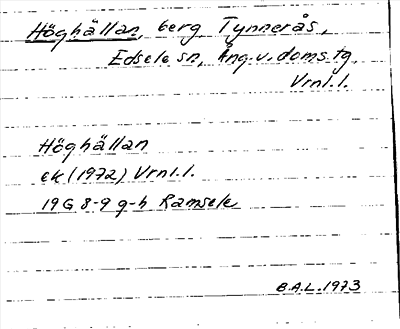 Höghällan, berg Tynnerås,
Edsele sn, Ång.v.doms.tg.
Vrnl.l.
Höghällan
ek (1972) Vrnl.l.
19G 8-9 g-h Ramsele
B.A.L. 1973